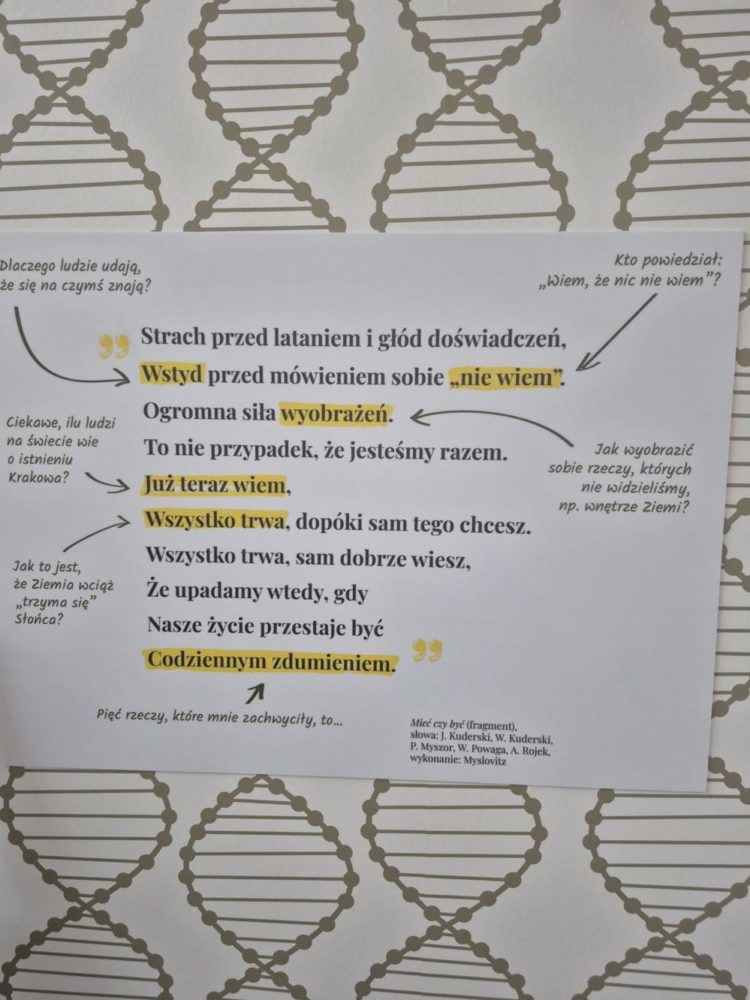 Dlaczego ludzie udają,
że się na czymś znają?
Kto powiedział:
„Wiem, że nic nie wiem”?
Strach przed lataniem i głód doświadczeń,
Wstyd przed mówieniem sobie „nie wiem”.
Ogromna siła wyobrażeń.
To nie przypadek, że jesteśmy razem.
Już teraz wiem,
Wszystko trwa, dopóki sam tego chcesz.
Wszystko trwa, sam dobrze wiesz,
Że upadamy wtedy, gdy
Nasze życie przestaje być
Codziennym zdumieniem.
Ciekawe, ilu ludzi
na świecie wie
o istnieniu
Krakowa?
Jak wyobrazić
sobie rzeczy, których
nie widzieliśmy,
np. wnętrze Ziemi?
Jak to jest,
że Ziemia wciąż
„trzyma się”
Słońca?
Pięć rzeczy, które mnie zachwyciły, to...
Mieć czy być (fragment),
słowa: J. Kuderski, W. Kuderski,
P. Myszor, W. Powaga, A. Rojek,
wykonanie: Myslovitz